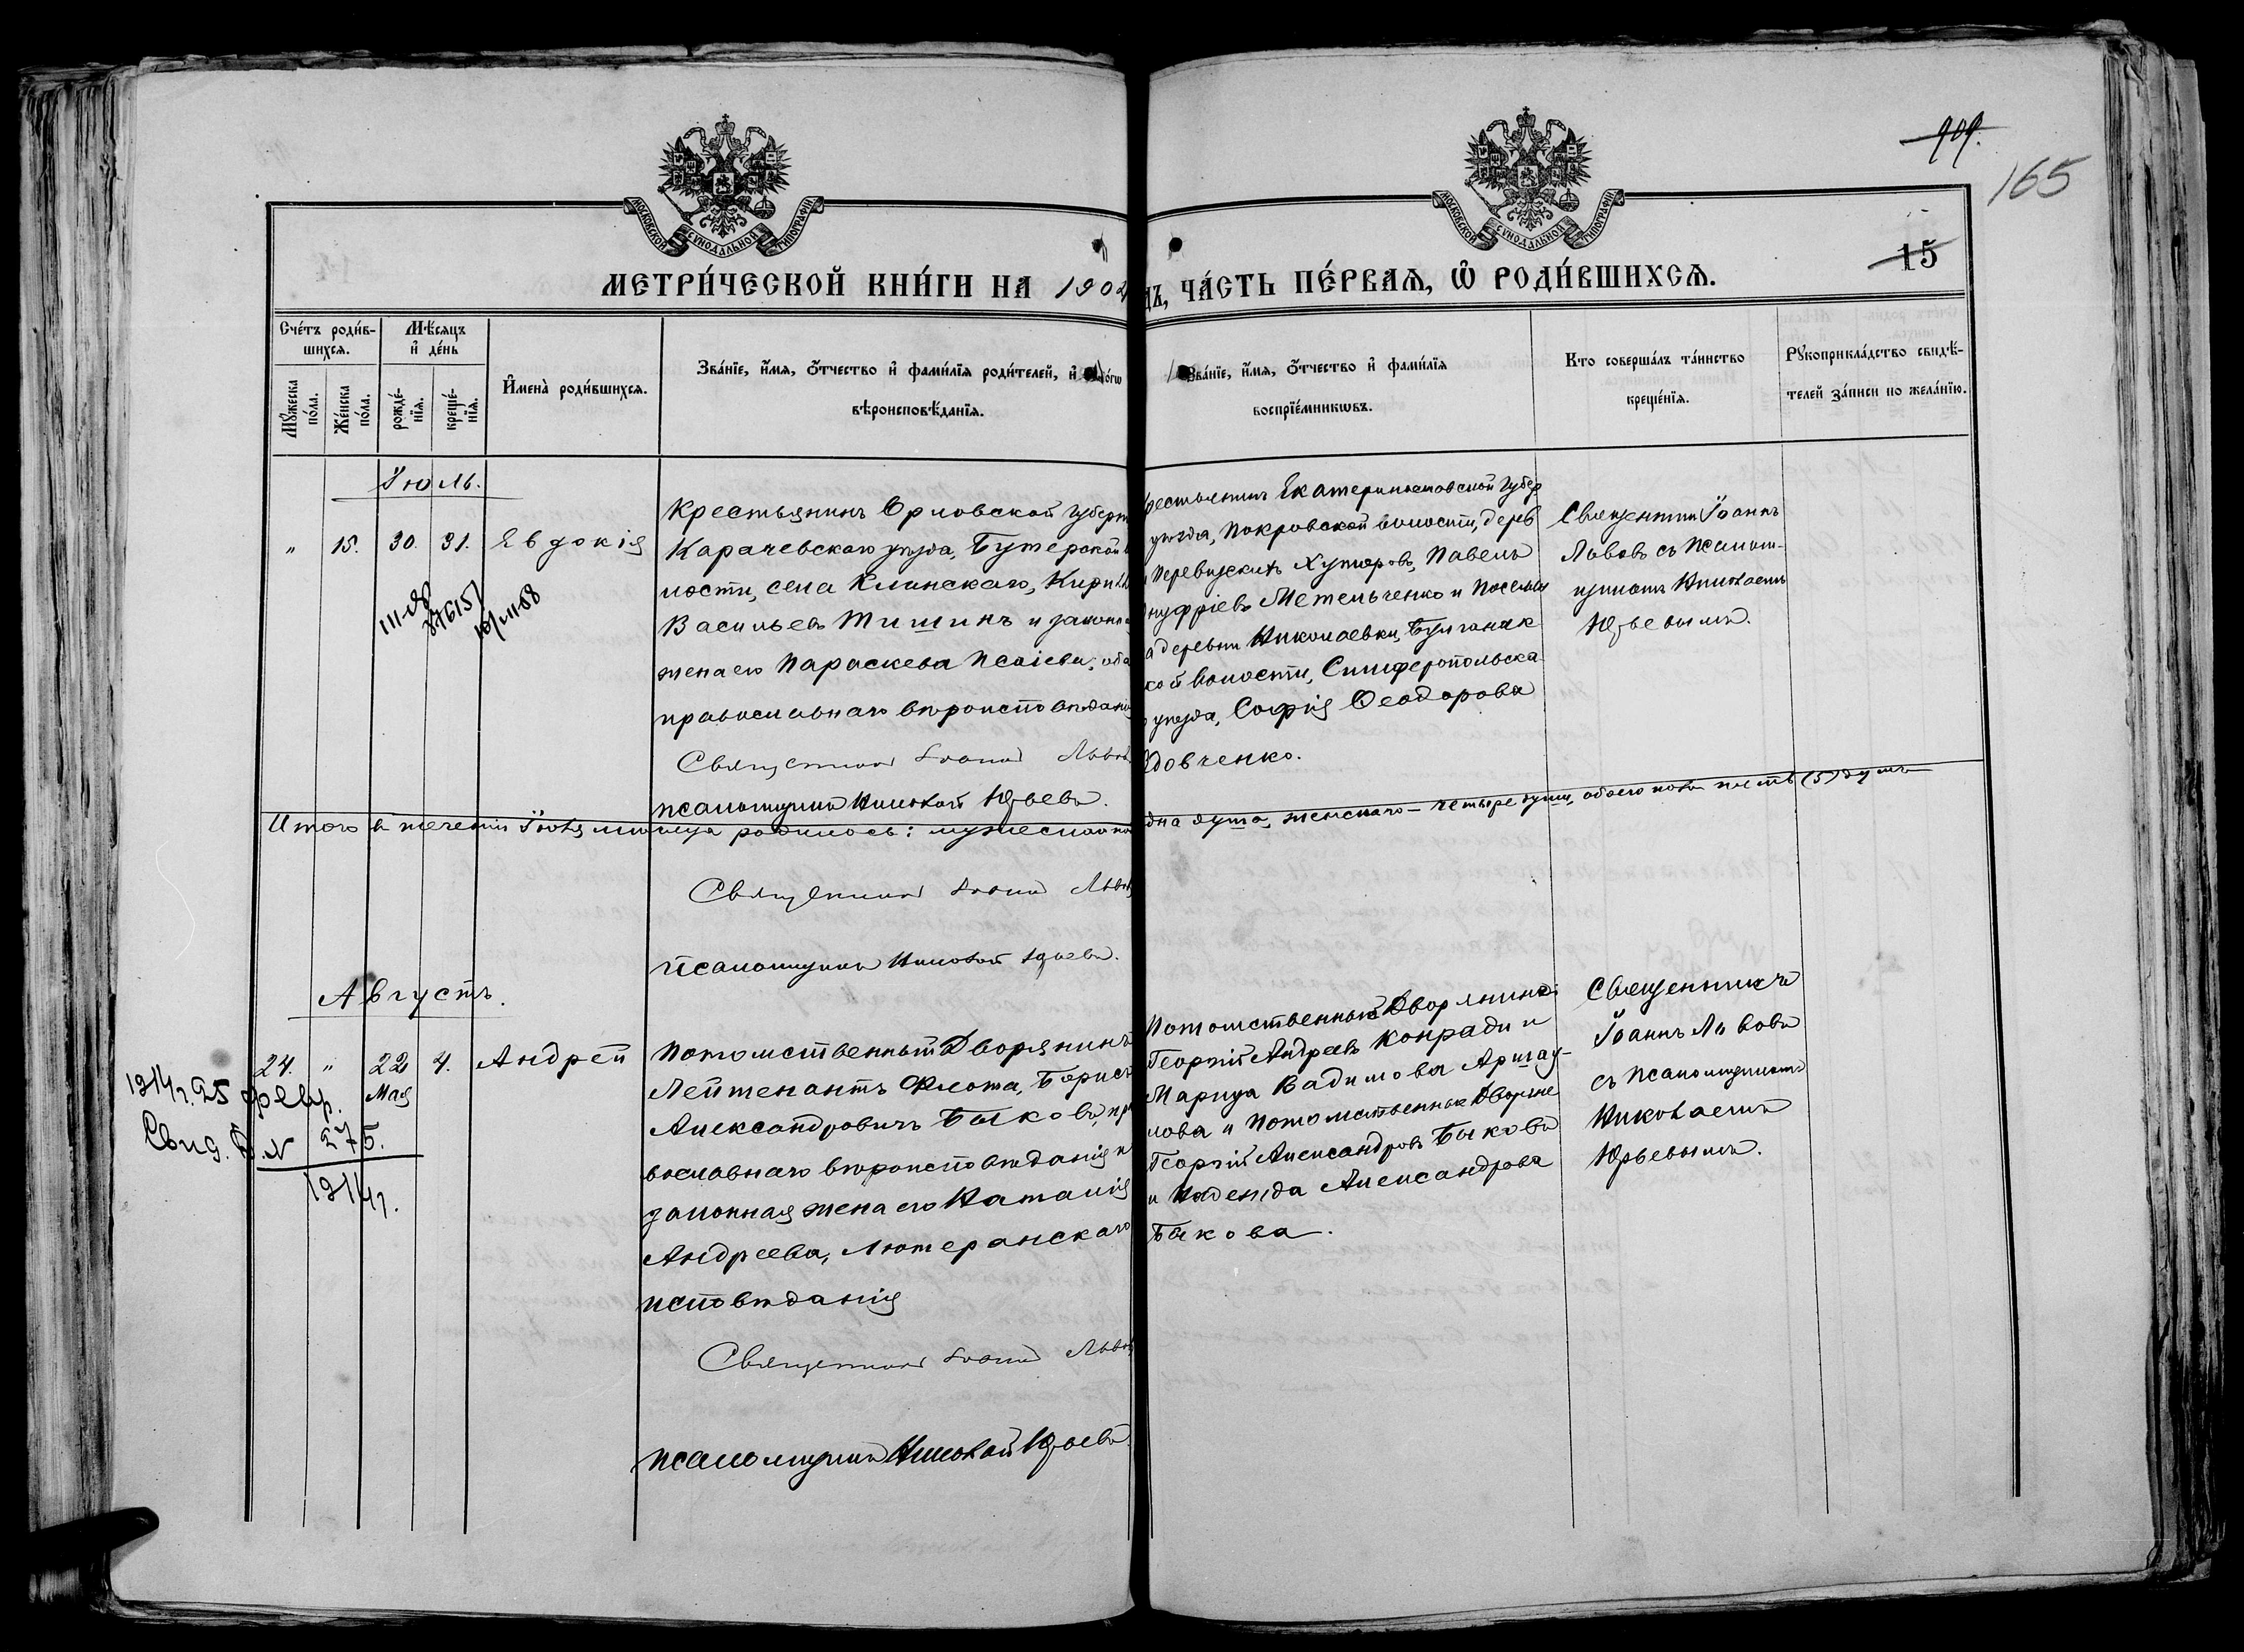 909.
165
МОСКОВСКОЙ СѴНОДАЛЬНОЙ ТИПОГРАФІИ
МОСКОВСКОЙ СѴНОДАЛЬНОЙ ТИПОГРАФІИ
15
МЕТРИ́ЧЕСКОЙ КНИ́ГИ НА 1902
ДЪ, ЧА́СТЬ ПЕ́РВАѦ, Ѽ РОДИ́ВШИХСѦ.
Сче́тъ роди́в-
шихсѧ.
Мѣ́сѧцъ
и҆ де́нь
Мꙋ́жеска
по́ла.
Же́нска
по́ла.
рожде́-
нїѧ.
креще́-
нїѧ.
И҆мена̀ роди́вшихсѧ.
Зва́нїе, и҆́мѧ, ѻ҆́тчество и҆ фами́лїѧ роди́телей, и҆
вѣроисповѣ́данїѧ.
Зва́нїе, и҆́мѧ, ѻ҆́тчество и҆ фами́лїѧ
воспрїе́мникѡвъ.
Кто соверша́лъ та́инство
креще́нїѧ.
Рꙋкоприкла́дство свидѣ́-
телей за́писи по жела́нїю.
Іюль.
" 15. 30. 31. Евдокія
Крестьянинъ Орловской Губерн
Карачевскаго уѣзда, Бутерской в
лости, села Клинскаго, Кирилл
Васильевъ Тишинъ и законн
жена его Параскева Исаіева, оба
православнаго вѣроисповѣданія
Священникъ Іоаннъ Львовъ
псаломщикъ Николай Юрьевъ.
рестьянинъ Екатеринославской Губер
уѣзда, Покровской волости, дерев
Хуторовъ, Павелъ
нуфріевъ Метельченко и Поселян
а деревни Николаевки, Булганак
кой волости, Симферопольска
уѣзда, Софія Ѳеодорова
довченко.
Священникъ Іоаннъ
Львовъ съ Псалом-
щикомъ Николаемъ
Юрьевымъ.
Итого въ теченіи Іюля мѣсяца родилось: мужескаго по
дна душа, женскаго – четыре души, обоего пола пять (5) душъ
Священникъ Іоаннъ Львовъ
Псаломщикъ Николай Юрьевъ.
Августъ.
24. " 22 4. Андрей
Мая
1914г. 25 февр.
Свид. В. N 275.
1914г.
Потомственный Дворянинъ
Лейтенантъ Флота, Борисъ
Александровичъ Быковъ, пра
вославнаго вѣроисповѣданія и
законная жена его Наталія
Андреева, Лютеранскаго
исповѣданія
Священникъ Іоаннъ Львовъ
псаломщикъ Николай Юрьевъ
Потомственный Дворянинъ
Георгій Андреевъ Конради и
Марица Вадимова Аршау-
лова и Потомственные Дворяне
Георгій Александровъ Быковъ
и Надежда Александрова
Быкова.
Священникъ
Іоаннъ Львовъ
съ Псаломщикомъ
Николаемъ
Юрьевымъ.